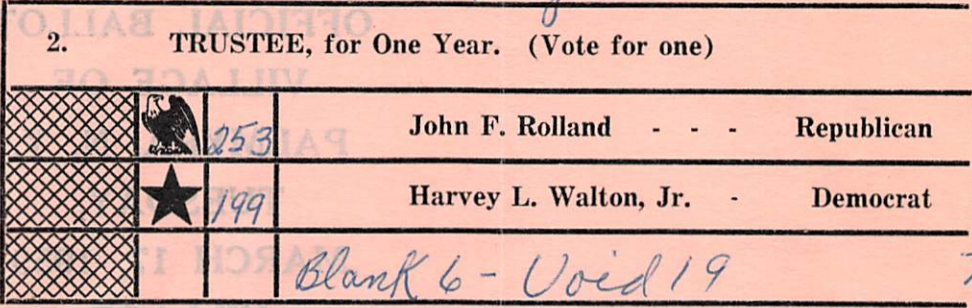 2. TRUSTEE, for One Year. (Vote for one)
253 John F. Rolland - - - Republican
199 Harvey L. Walton, Jr. - Democrat
Blank 6 - Void 19